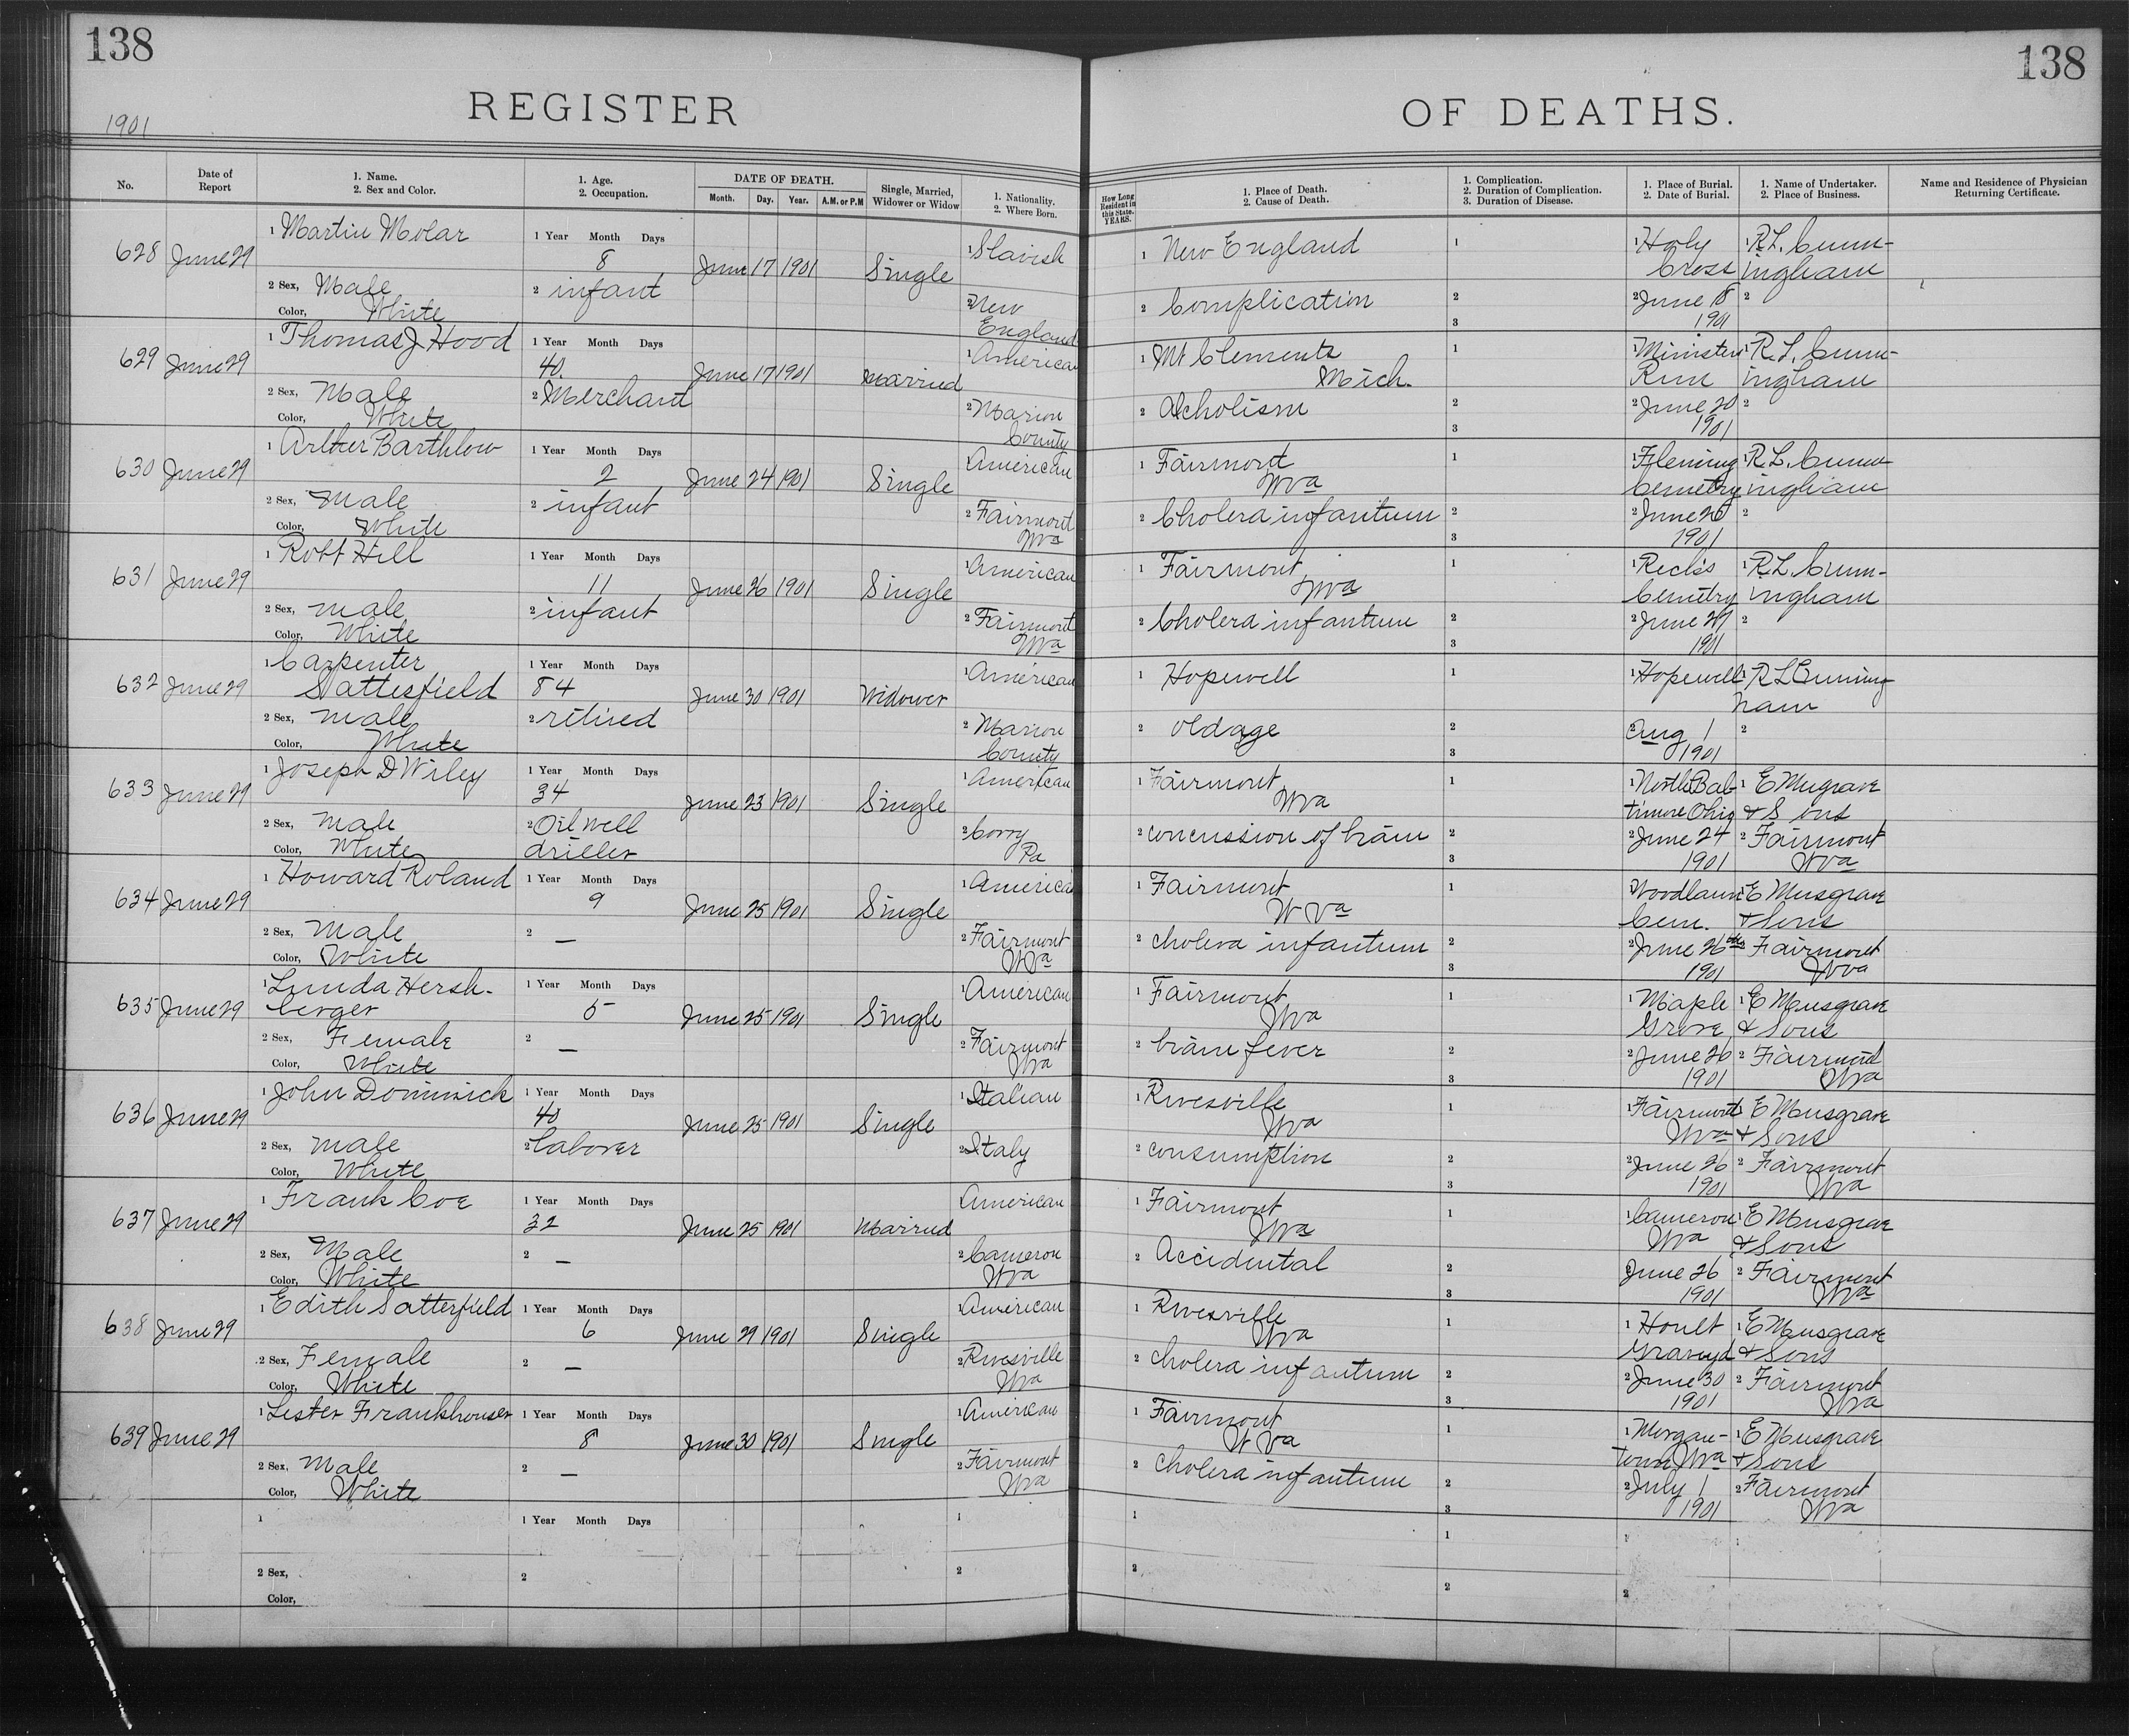 138
138
1901
REGISTER
OF DEATHS.
No.
Date of Report
1. Name.
2. Sex and Color.
1. Age.
2. Occupation.
DATE OF DEATH.
Month. Day. Year. A.M. or P.M
Single, Married,
Widower or Widow
1. Nationality.
2. Where Born.
How Long Resident in this State. YEARS.
1. Place of Death.
2. Cause of Death.
1. Complication.
2. Duration of Complication.
3. Duration of Disease.
1. Place of Burial.
2. Date of Burial.
1. Name of Undertaker.
2. Place of Business.
Name and Residence of Physician
Returning Certificate.
628 June 29 1 Martin Molar 1 Year Month Days 8 June 17 1901 Single 1 Slavish 1 New England 1 1 Holy Cross 1 R.L. Cunn-ingham
2 Sex, Male Color, White 2 infant 2 New England 2 Complication 2 3 2 June 18 1901 2
629 June 29 1 Thomas J Hood 1 Year Month Days 40. June 17 1901 Married 1 American 1 Mt Clements Mich. 1 1 Ministers Run 1 R.L. Cunn-ingham
2 Sex, Male Color, White 2 Merchant 2 Marion County 2 Acholism 2 3 2 June 20 1901 2
630 June 29 1 Arthur Barthlow 1 Year Month Days 2 June 24 1901 Single 1 American 1 Fairmont Wva 1 1 Fleming Cemetry 1 R.L. Cunn-ingham
2 Sex, Male Color, White 2 infant 2 Fairmont Wva 2 Cholera infantum 2 3 2 June 1901 2
631 June 29 1 Robt Hill 1 Year Month Days 11 June 26 1901 Single 1 American 1 Fairmont Wva 1 1 Cemetry 1 R.L. Cunn-ingham
2 Sex, male Color, White 2 infant 2 Fairmont Wva 2 Cholera infantum 2 3 2 June 27 1901 2
632 June 29 1 Carpenter Satterfield 1 Year Month Days 84 June 30 1901 Widower 1 American 1 Hopewell 1 1 Hopewell 1 R L Cuning ham
2 Sex, male Color, White 2 retired 2 Marion County 2 old age 2 3 Aug 1 1901 2
633 June 29 1 Joseph D Wiley 1 Year Month Days 34 June 23 1901 Single 1 American 1 Fairmont Wva 1 1 North Bal-timore Ohio 1 E Musgrave & Sons
2 Sex, male Color, White 2 Oil well driller 2 Corry Pa 2 concussion of brain 2 3 2 June 24 1901 2 Fairmont Wva
634 June 29 1 Howard Roland 1 Year Month Days 9 June 25 1901 Single 1 American 1 Fairmont W Va 1 Woodlawn Cem. 1 E Musgrave & Sons
2 Sex, Male Color, White 2 — 2 Fairmont WVa 2 cholera infantum 2 3 2 June 26th 1901 2 Fairmont Wva
635 June 29 1 Lunda Hersh-berger 1 Year Month Days 5 June 25 1901 Single 1 American 1 Fairmont Wva 1 1 Maple Grove 1 E Musgrave & Sons
2 Sex, Female Color, White 2 — 2 Fairmont Wva 2 brain fever 2 3 2 June 26 1901 2 Fairmont Wva
636 June 29 1 John Dominick 1 Year Month Days 40 June 25 1901 Single 1 Italian 1 Rivesville Wva 1 1 Fairmont Wva 1 E Musgrave & Sons
2 Sex, male Color, White 2 laborer 2 Italy 2 consumption 2 3 2 June 26 1901 2 Fairmont Wva
637 June 29 1 Frank Coe 1 Year Month Days 32 June 25 1901 Married American 1 Fairmont Wva 1 1 Cameron Wva 1 E Musgrave & Sons
2 Sex, Male Color, White 2 — 2 Cameron Wva 2 Accidental 2 3 June 26 1901 2 Fairmont Wva
638 June 29 1 Edith Satterfield 1 Year Month Days 6 June 29 1901 Single 1 American 1 Rivesville Wva 1 1 Hoult Graveyd 1 E Musgrave & Sons
2 Sex, Female Color, White 2 — 2 Rivesville Wva 2 cholera infantum 2 3 2 June 30 1901 2 Fairmont Wva
639 June 29 1 Lester Frankhouser 1 Year Month Days 8 June 30 1901 Single 1 American 1 Fairmont W Va 1 1 Morgan-town Wva 1 E Musgrave & Sons
2 Sex, Male Color, White 2 — 2 Fairmont Wva 2 cholera infantum 2 3 2 July 1 1901 2 Fairmont Wva
1 1 Year Month Days 1 1 1 1
2 Sex, Color, 2 2 2 2 2